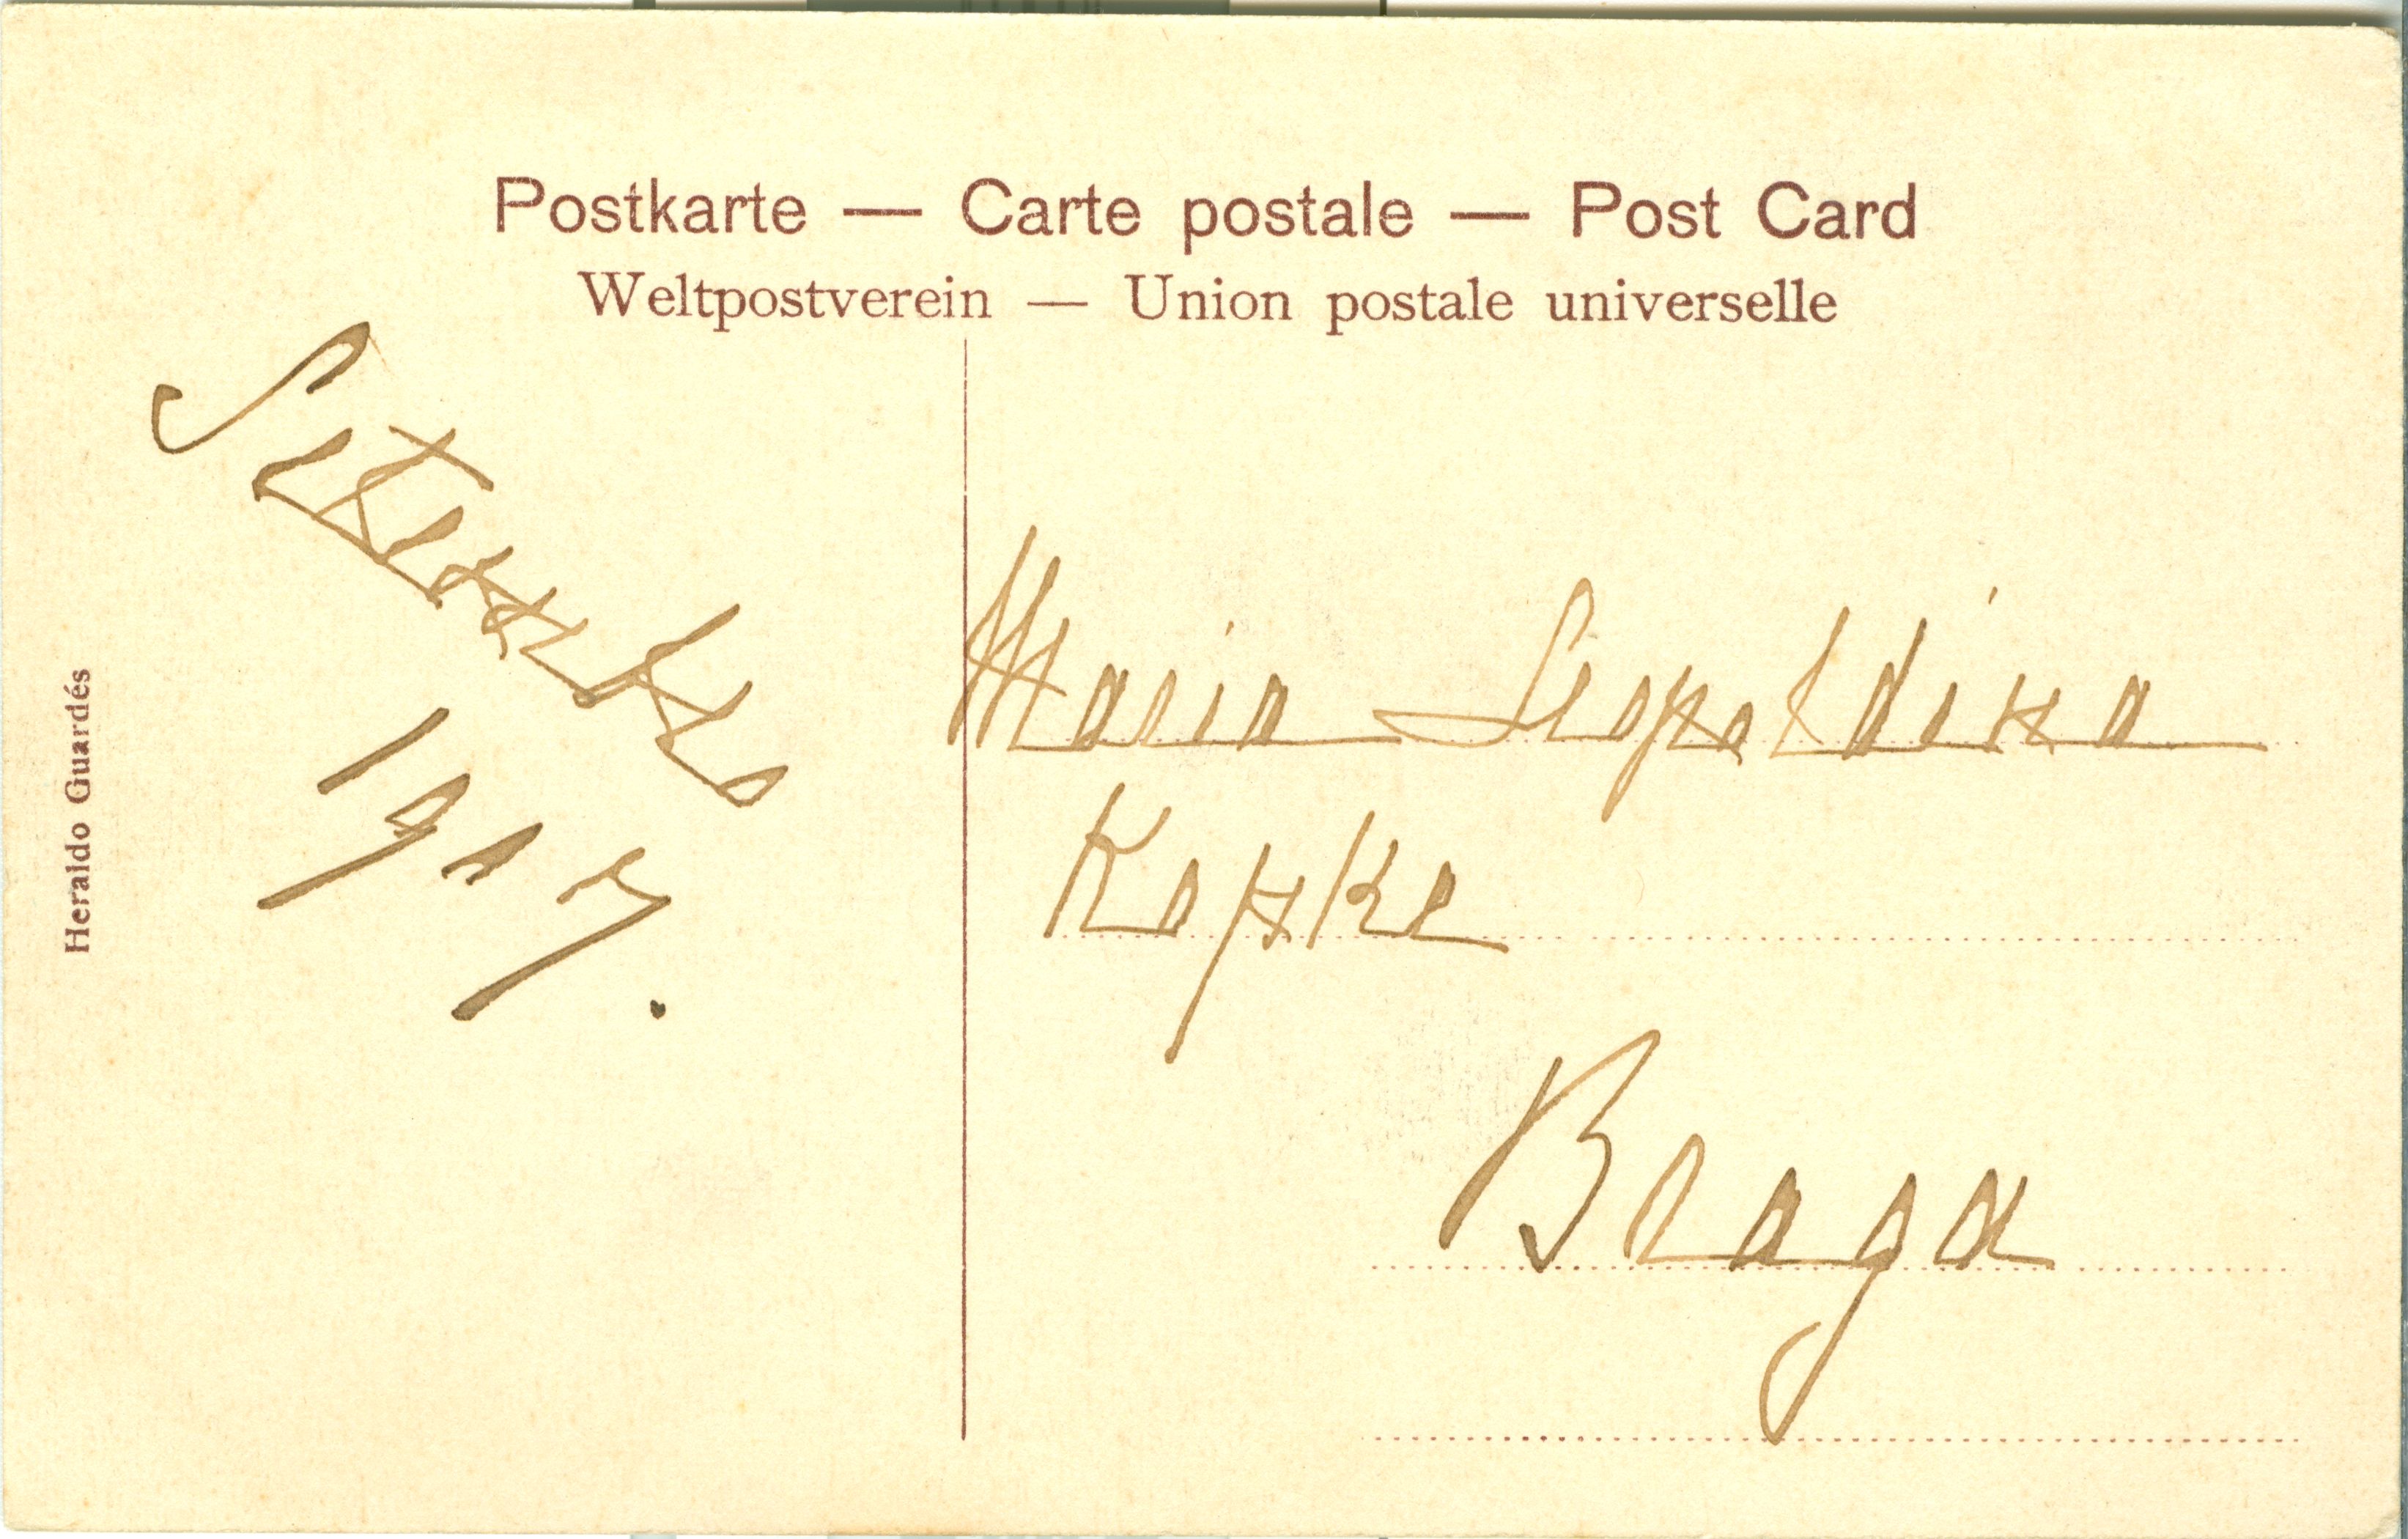 Postkarte — Carte postale — Post Card
Weltpostverein — Union postale universelle
Setembro
1907.
Heraldo Guardés
Maria Leopoldina
Kopke
Braga